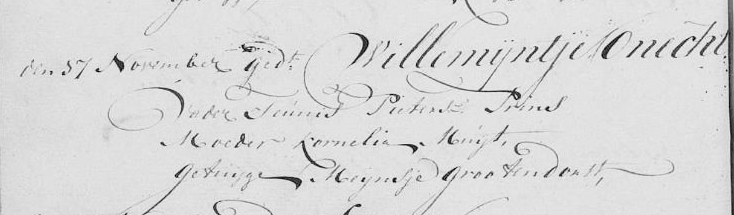 den 37 November Gedt. Willemÿntje Onecht
Vader Teunis Pieters Prins
Moeder Kornelia Muÿt,
getuÿge Meÿnsje Grootendorst,